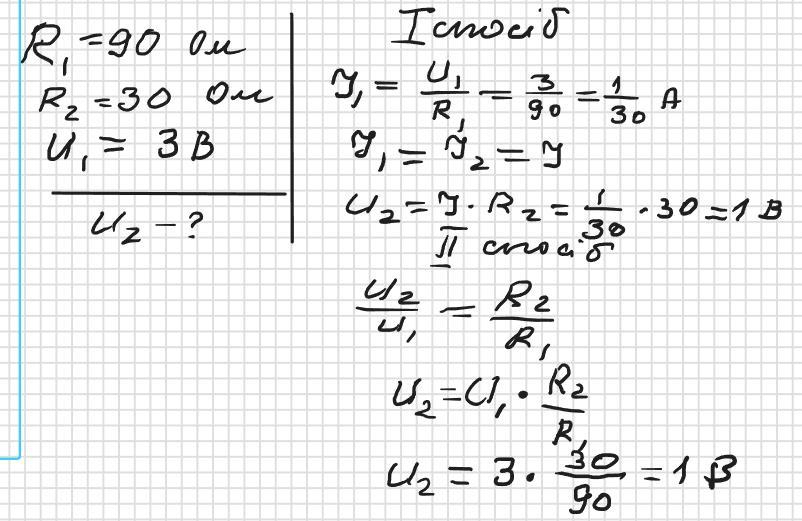 R₁ = 90 Ом
R₂ = 30 Ом
U₁ = 3 В
U₂ - ?
I спосіб
I₁ = U₁/R₁ = 3/90 = 1/30 А
I₁ = I₂ = I
U₂ = I · R₂ = 1/30 · 30 = 1 В
II спосіб
U₂/U₁ = R₂/R₁
U₂ = U₁ · R₂/R₁
U₂ = 3 · 30/90 = 1 В